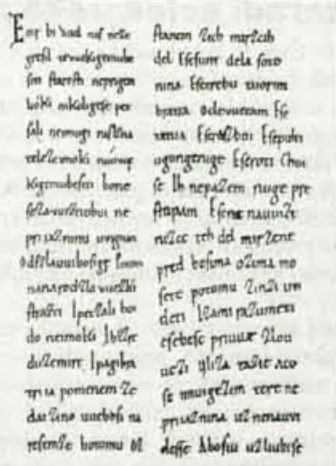 Ecce bi detd naſ neze
greſil tevuekigemube
ſiti ſtaroſti neprigem
lióki nikoligeſe pet
ſali neimugi niſlzna
teleze imoki nuúvue
kigemubeſiti bone
ſeza vuiztnobui ne
priiaznina uvignan
Odſzlauuiboſige Ipotom
nanarodzlovuezki
ſtraſti Ipetzali boi
do neimoki Ibzzre
duzemirt Ipagibra
tri ia pomenem ze
dai zino uueboſi na
reſemze botomu Oz
ſtanem zich mirzcih
del Eſeſunt dela ſoto
nina Eſetrebu tuorim
bratra Oclevuetam Eſe
tatua Eſerazboi Eſepulti
ugongenige Eſeroti Choi
ſe Ih nepazem nuge pre
ſtopam Eſene nauuizt
nizce teh del mirzene
pred boſima oſima mo
ſete potomu zinzi uvi
deti Izami razumeti
eſebeſe priuuae zlou
uezi Uliza tazie aco
ſe imuigezim tere ne
priiaznina uz nenauvi
deſſe Aboſiu uzliubiſe